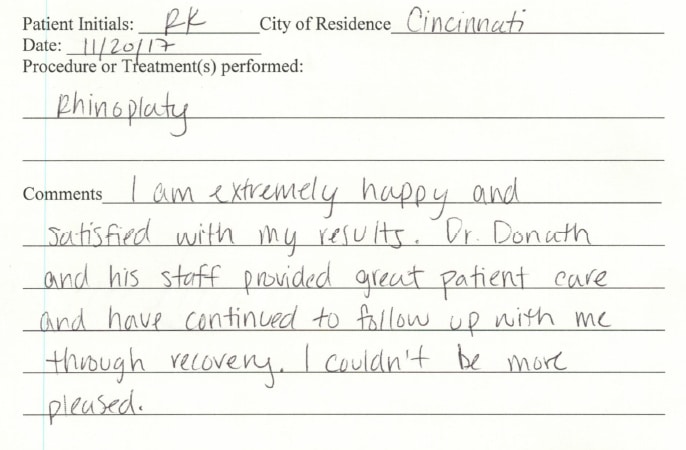 Patient Initials: RK City of Residence Cincinnati
Date: 11/20/17
Procedure or Treatment(s) performed:
Rhinoplaty
Comments I am extremely happy and
satisfied with my results. Dr. Donath
and his staff provided great patient care
and have continued to follow up with me
through recovery. I couldn't be more
pleased.